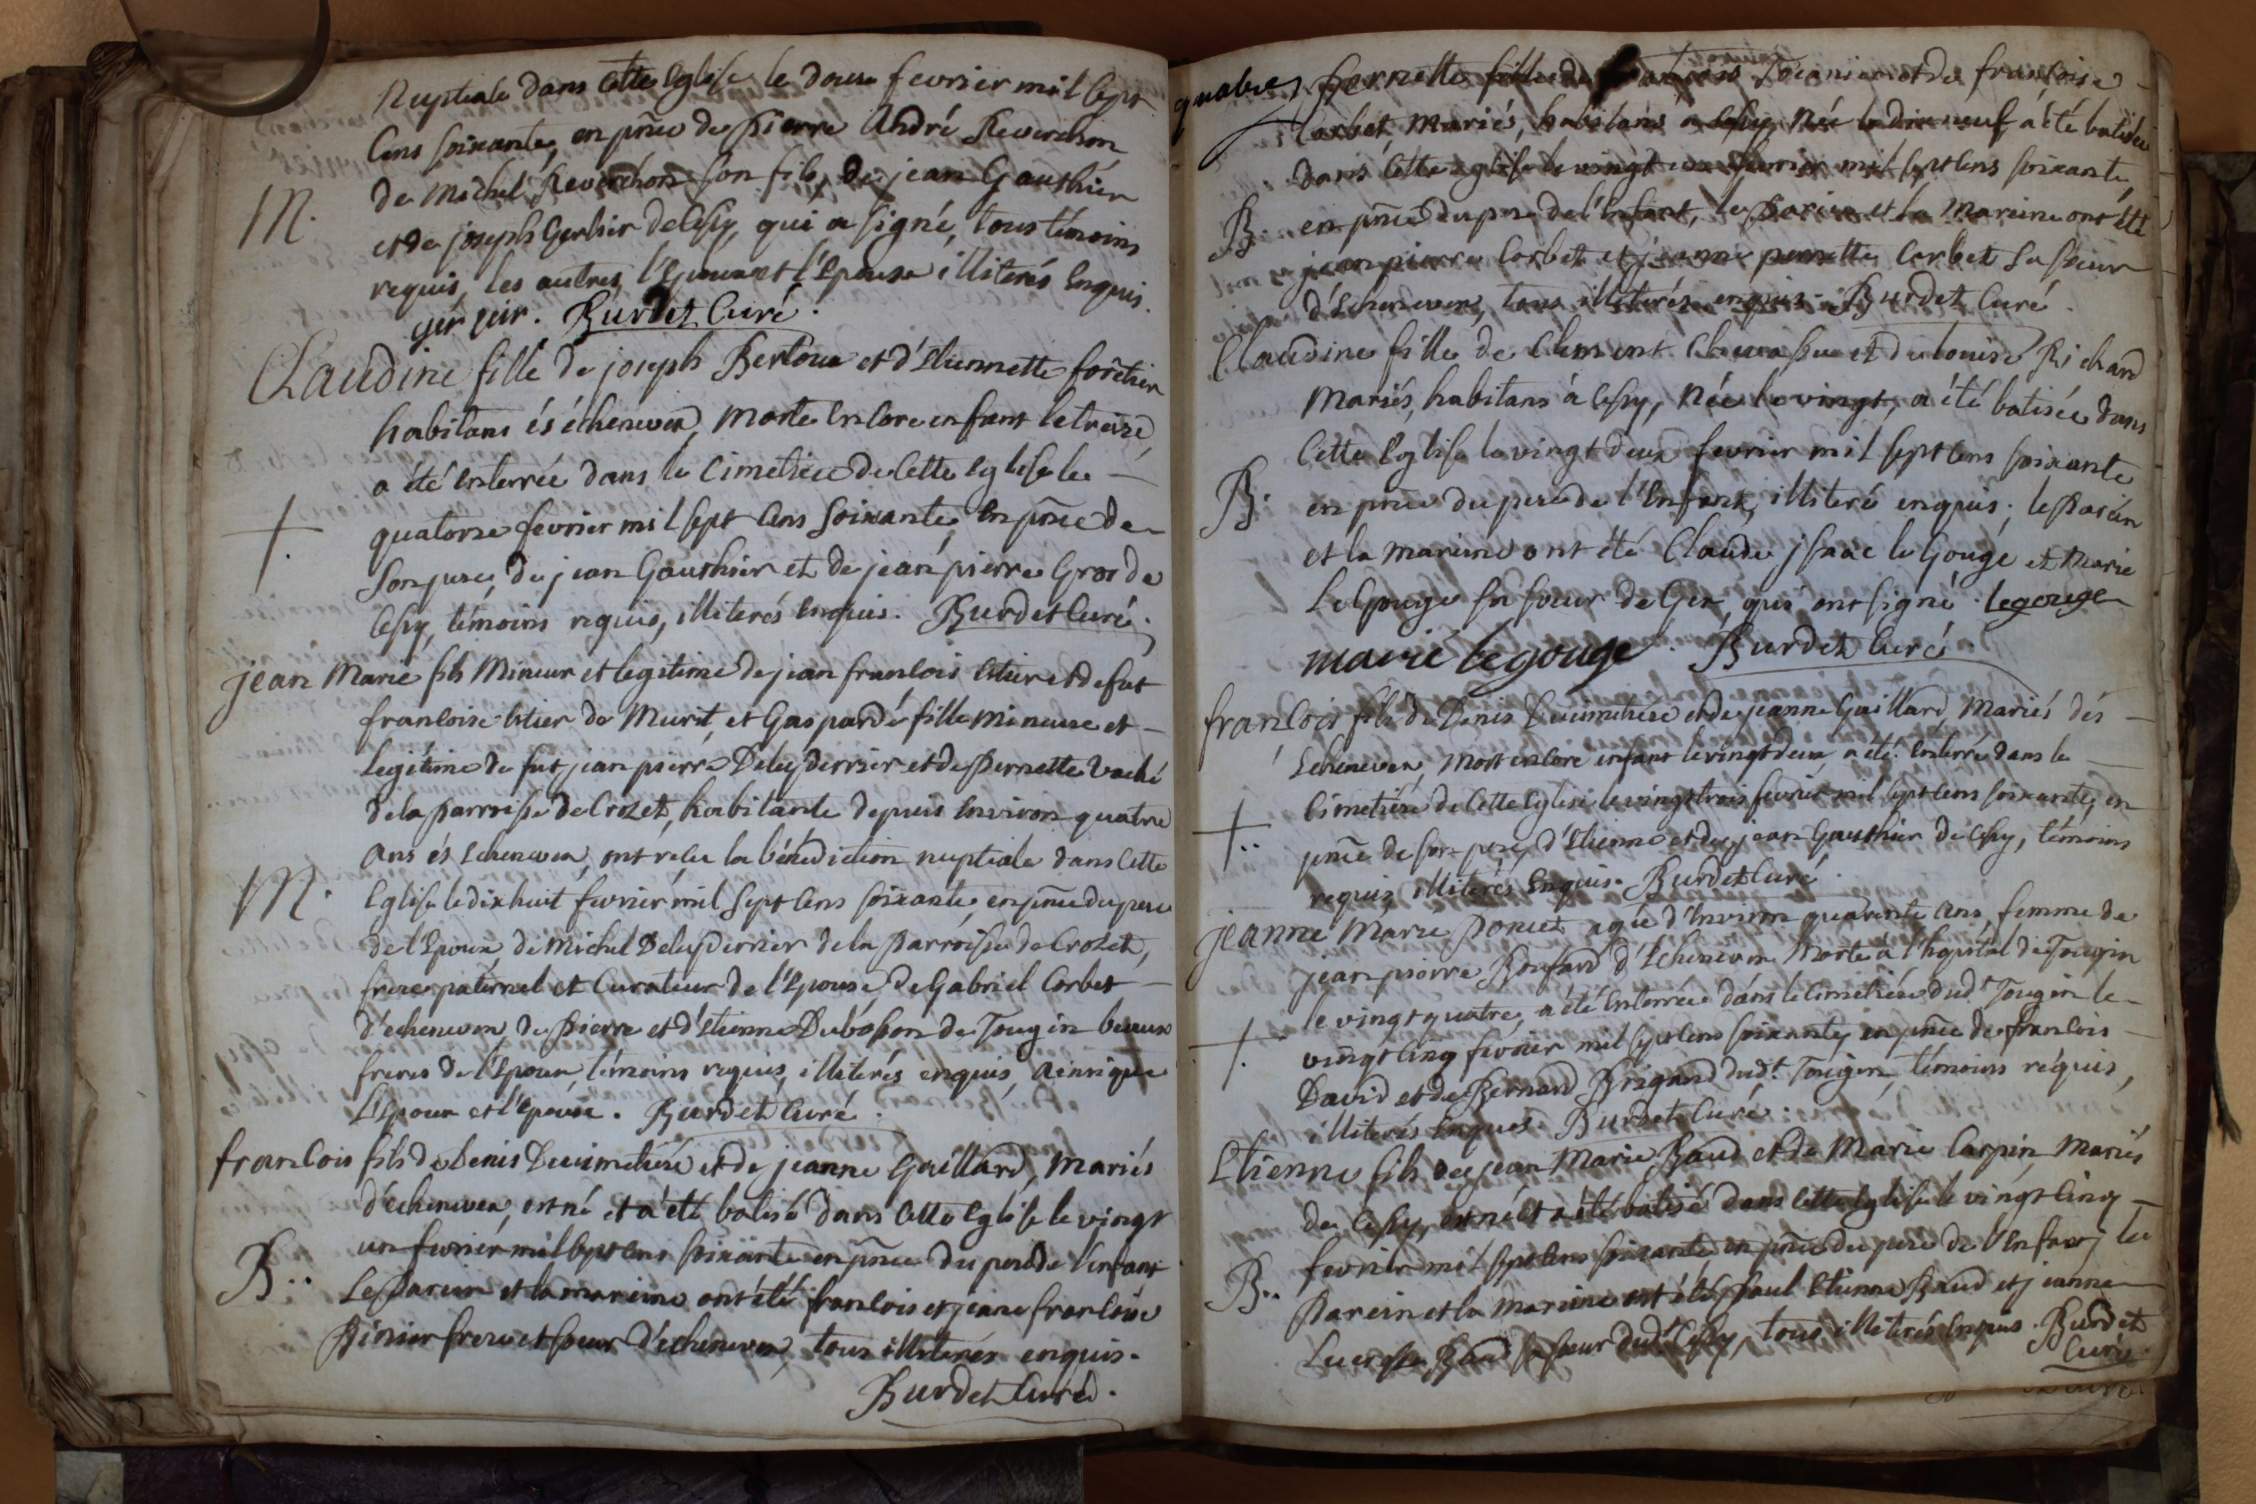 Nuptiale dans cette Eglise le douze fevrier mil sept
cens soixante, en pñce de Pierre André Reverchon
de Michel Reverchon son fils, de jean Gauthier
M.
et de joseph Gerlier de Cessy, qui a signé, tous témoins
requis, les autres, l'Epoux et l'Epouse illiterés enquis.
Burdet Curé.
Claudine fille de joseph Bertoux et d'Etiennette forêtier
habitans és échenevex, morte encore enfant le treize,
a été enterrée dans le Cimetiere de cette Eglise le
+
quatorze fevrier mil sept cens soixante, en pñce de
son pere, de jean Gauthier et de jean pierre Gros de
Cessy, témoins requis, illiterés enquis. Burdet Curé.
jean Marie fils Mineur et legitime de jean francois Estier et de fut
francoise Estier de Murit, et Gasparde fille mineure et
legitime de fut jean pierre Deleyderrier et de Pernette Vaché
de la parroisse de Crozet, habitante depuis environ quatre
ans és Echenevex, ont reçu la bénédiction nuptiale dans cette
M.
Eglise le dix huit fevrier mil sept cens soixante, en pñce du pere
de l'Epoux, de Michel Deleyderrier de la Parroisse de Crozet,
frere paternel et Curateur de l'Epouse, de Gabriel Corbet
d'echenevex, de Pierre et d'Etienne Dubosson de Tougin beaux
freres de l'Epoux, témoins requis, illiterés enquis, ainsi que
l'Epoux et l'Epouse. Burdet Curé.
francois fils de Denis Ducimetiére et de jeanne Gaillard, mariés
d'echenevex, est né et a été batisé dans cette Eglise le vingt
un fevrier mil sept cens soixante en pñce du pere de l'enfant
B..
Le Parein et la mareine ont été francois et jeane francoise
frere et soeur d'echenevex, tous illiterés enquis.
Burdet Curé.
Pernette fille de francois et de francoise
Corbet, Mariés, habitans à Cessy, Née le dix neuf a été batisée
dans cette Eglise le vingt un fevrier mil sept cens soixante,
B.
en pñce du pere de l'enfant, le Parein et la Mareine ont été
jean pierre Corbet et jeanne pernette Corbet sa soeur
d'Echenevex, tous illiterés enquis. Burdet Curé
Claudine fille de Clement Chevassu et de louise Richard
Mariés, habitans à Cessy, Née le vingt, a été batisée dans
cette Eglise le vingt deux fevrier mil sept cens soixante
B.
en pñce du pere de l'Enfant, illiteré enquis; le Parein
et la mareine ont été Claude jsaac le Gouge et Marie
Le Gouge sa soeur de Gex, qui ont signé. legouge
marie legouge. Burdet Curé
francois fils de Denis Ducimetiére et de jeanne Gaillard, Mariés dés
Echenevex, Mort encore enfant le vingt deux a été enterré dans le
Cimetiére de cette Eglise le vingt trois fevrier mil sept cens soixante, en
+..
pñce de son pere, d'Etienne et de jean Gauthier de Cessy, témoins
requis, illiterés enquis. Burdet Curé.
jeanne Marie Poncet agée d'Environ quarante ans, femme de
jean pierre Bonfard d'Echenevex Morte à l'hopital de Tougin
le vingt quatre, a été enterrée dans le Cimetiére dud.t Tougin le
+.
vingt cinq fevrier mil sept cens soixante, en pñce de francois
David et de Bernard Brigand dud.t Tougin, témoins réquis,
illiterés enquis. Burdet Curé.
Etienne fils de jean Marie Baud et de Marie Carpin, Mariés
de Cessy, est né et a été batisé dans cette Eglise le vingt cinq
fevrier mil sept cens soixante, en pñce du pere de l'enfant, le
B..
Parein et la mareine ont été Paul Etienne Baud et jeanne
Lucresse Baud sa soeur dud.t Cessy, tous illiterés enquis. Burdet
Curé.